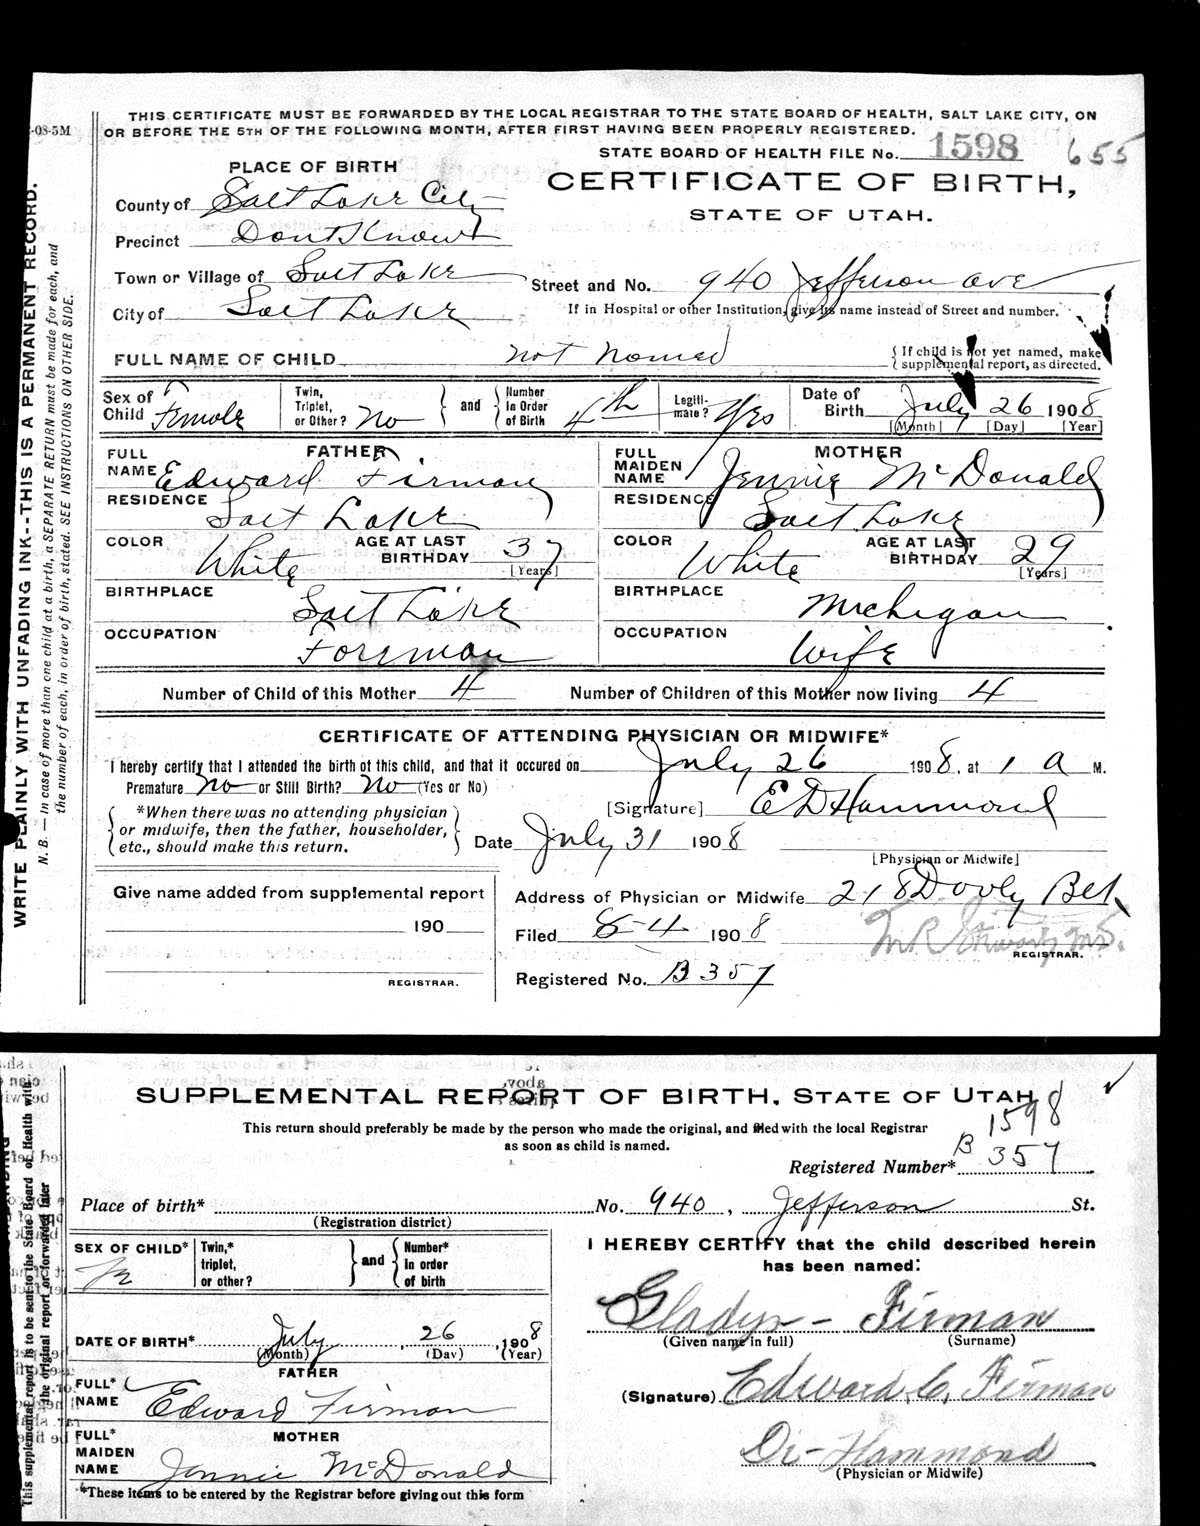 -08-5M
THIS CERTIFICATE MUST BE FORWARDED BY THE LOCAL REGISTRAR TO THE STATE BOARD OF HEALTH, SALT LAKE CITY, ON
OR BEFORE THE 5TH OF THE FOLLOWING MONTH, AFTER FIRST HAVING BEEN PROPERLY REGISTERED.
STATE BOARD OF HEALTH FILE No. 1598 655
PLACE OF BIRTH
CERTIFICATE OF BIRTH,
STATE OF UTAH.
County of Salt Lake City
Precinct Dont Know
Town or Village of Salt Lake
Street and No. 940 Jefferson ave
City of Salt Lake
If in Hospital or other Institution, give its name instead of Street and number.
FULL NAME OF CHILD not named
{ If child is not yet named, make supplemental report, as directed.
Sex of Child Female
Twin, Triplet, or Other? No } and { Number in Order of Birth 4th
Legiti-mate? Yes
Date of Birth July 26 1908
[Month] [Day] [Year]
FATHER
FULL NAME Edward Firman
RESIDENCE Salt Lake
COLOR White AGE AT LAST BIRTHDAY 37 [Years]
BIRTHPLACE Salt Lake
OCCUPATION Foreman
MOTHER
FULL MAIDEN NAME Jennie McDonald
RESIDENCE Salt Lake
COLOR White AGE AT LAST BIRTHDAY 29 [Years]
BIRTHPLACE Michigan
OCCUPATION Wife
Number of Child of this Mother 4 Number of Children of this Mother now living 4
CERTIFICATE OF ATTENDING PHYSICIAN OR MIDWIFE*
I hereby certify that I attended the birth of this child, and that it occured on July 26 1908, at 1 A M.
Premature No or Still Birth? No (Yes or No)
[Signature] E D Hammond
{ *When there was no attending physician
or midwife, then the father, householder,
etc., should make this return. }
Date July 31 1908
[Physician or Midwife]
Give name added from supplemental report
190
REGISTRAR.
Address of Physician or Midwife 218 Dooly
Filed 8-4 1908
REGISTRAR.
Registered No. B 357
WRITE PLAINLY WITH UNFADING INK--THIS IS A PERMANENT RECORD.
N. B. — In case of more than one child at a birth, a SEPARATE RETURN must be made for each, and
the number of each, in order of birth, stated. SEE INSTRUCTIONS ON OTHER SIDE.
SUPPLEMENTAL REPORT OF BIRTH, STATE OF UTAH
1598
This return should preferably be made by the person who made the original, and filed with the local Registrar
as soon as child is named.
Registered Number* B 357
Place of birth* No. 940, Jefferson St.
(Registration district)
SEX OF CHILD*
Twin,* triplet, or other? } and { Number* in order of birth
I HEREBY CERTIFY that the child described herein
has been named:
Gladys - Firman
(Given name in full) (Surname)
DATE OF BIRTH* July 26, 1908
(Month) (Day) (Year)
FATHER
FULL* NAME Edward Firman
(Signature) Edward C. Firman
MOTHER
FULL* MAIDEN NAME Jennie McDonald
Dr- Hammond
(Physician or Midwife)
*These items to be entered by the Registrar before giving out this form
This supplemental report is to be sent to the State Board of Health with
the original report or forwarded later